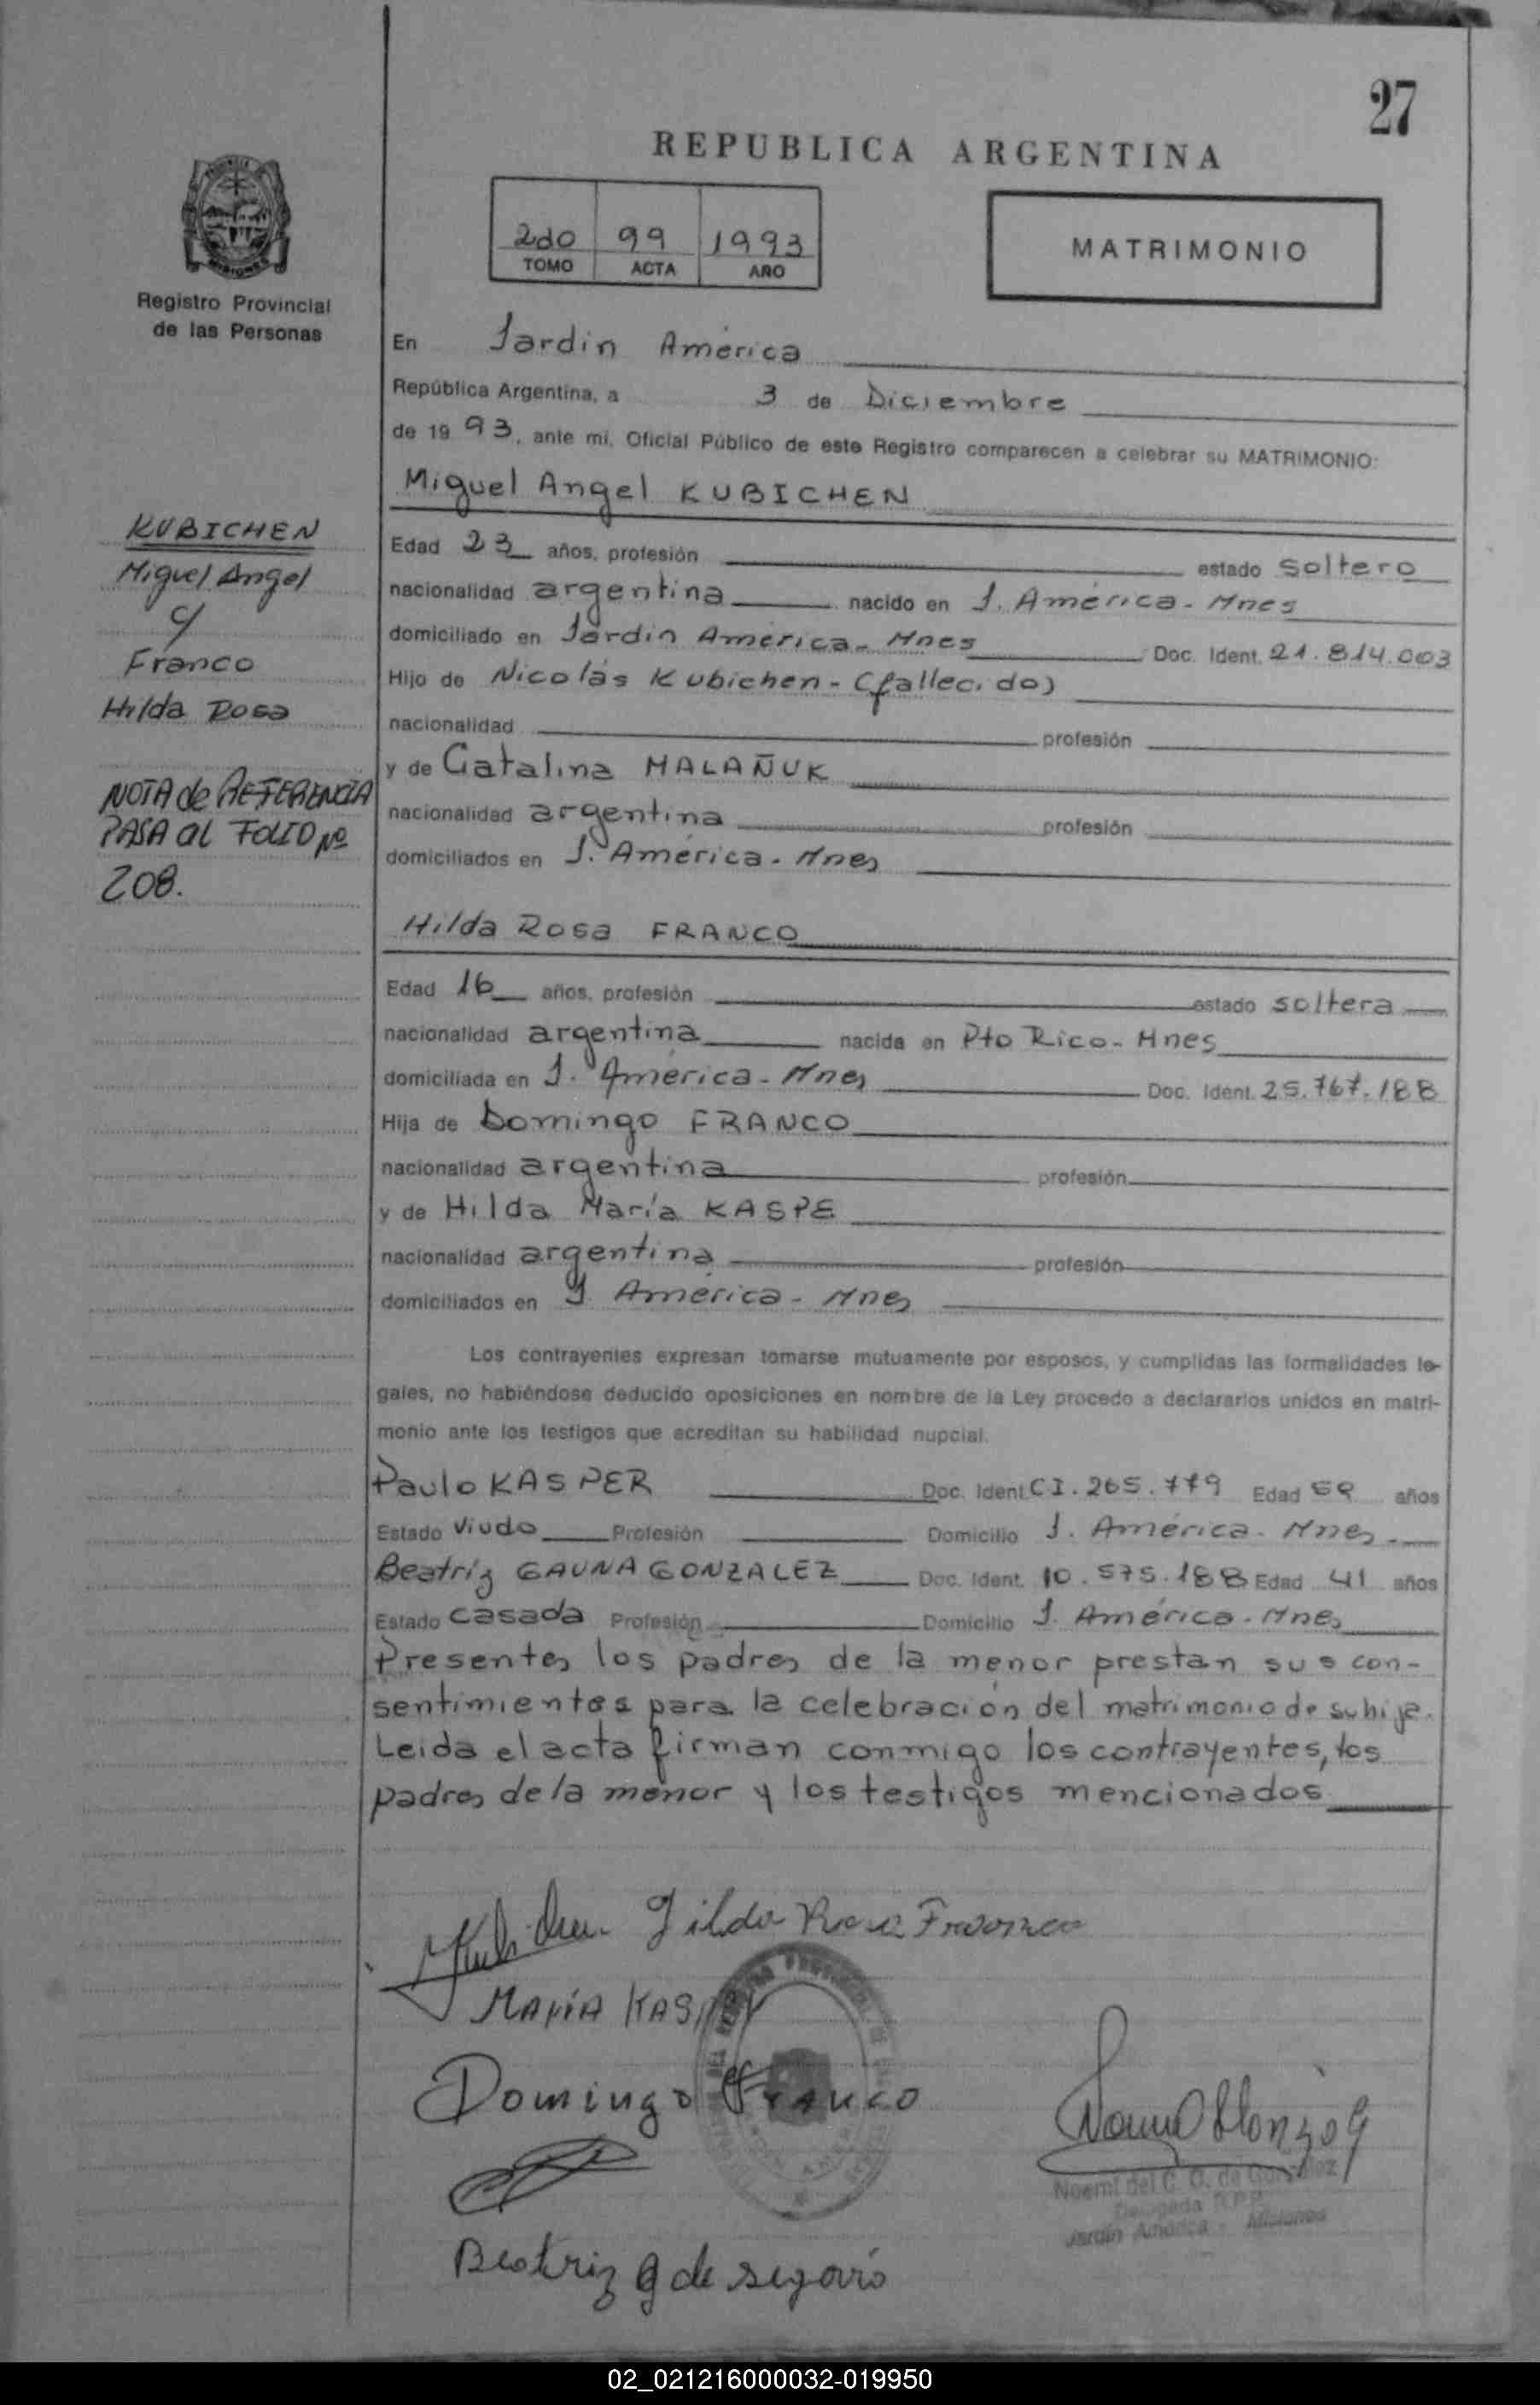 27
REPUBLICA ARGENTINA
2do 99 1993
TOMO ACTA AÑO
MATRIMONIO
MISIONES
Registro Provincial
de las Personas
En Jardin América
República Argentina, a 3 de Diciembre
de 19 93, ante mí, Oficial Público de este Registro comparecen a celebrar su MATRIMONIO:
Miguel Angel KUBICHEN
Edad 23 años, profesión estado soltero
nacionalidad argentina nacido en J. América - Mnes
domiciliado en Jardin América - Mnes Doc. Ident. 21.814.003
Hijo de Nicolás Kubichen - (fallecido)
nacionalidad profesión
y de Catalina MALAÑUK
nacionalidad argentina profesión
domiciliados en J. América - Mnes
KUBICHEN
Miguel Angel
y
Franco
Hilda Rosa
NOTA de REFERENCIA
PASA al FOLIO Nº
208.
Hilda Rosa FRANCO
Edad 16 años, profesión estado soltera
nacionalidad argentina nacida en Pto Rico - Mnes
domiciliada en J. América - Mnes Doc. Ident. 25.767.188
Hija de Domingo FRANCO
nacionalidad argentina profesión
y de Hilda María KASPE
nacionalidad argentina profesión
domiciliados en J. América - Mnes
Los contrayentes expresan tomarse mutuamente por esposos, y cumplidas las formalidades le-
gales, no habiéndose deducido oposiciones en nombre de la Ley procedo a declararlos unidos en matri-
monio ante los testigos que acreditan su habilidad nupcial.
Paulo KASPER Doc. Ident. CI. 265.779 Edad años
Estado Viudo Profesión Domicilio J. América - Mnes
Beatríz GAUNA GONZALEZ Doc. Ident. 10.575.188 Edad 41 años
Estado casada Profesión Domicilio J. América - Mnes
Presentes los padres de la menor prestan sus con-
sentimientos para la celebración del matrimonio de su hija.
Leida el acta firman conmigo los contrayentes, los
padres de la menor y los testigos mencionados
Kubichen Hilda Rosa Franco
MARÍA KASPER
Domingo Franco
Noemí del C. O. de González
Delegada R.P.P.
Jardín América - Misiones
Beatriz g de segovio
02_021216000032-019950